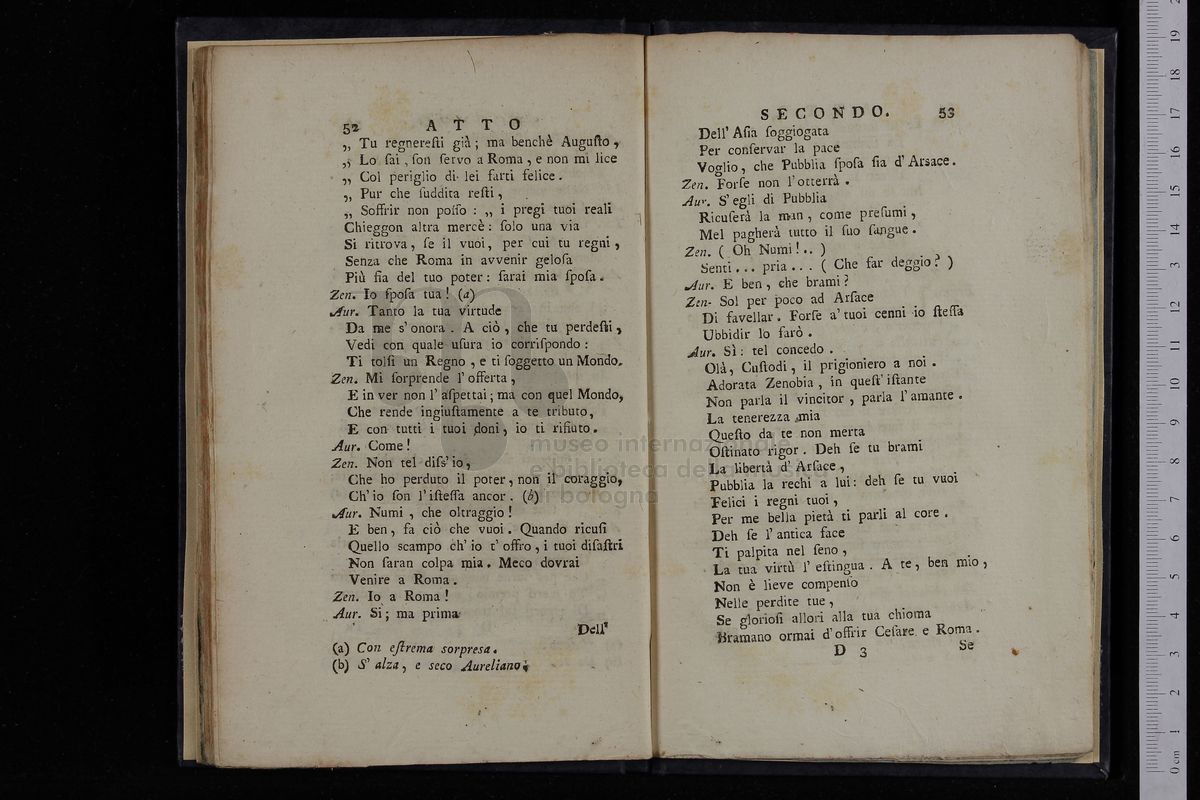 52 ATTO
„ Tu regnereſti già; ma benchè Auguſto,
„ Lo ſai, ſon ſervo a Roma, e non mi lice
„ Col periglio di lei farti felice.
„ Pur che ſuddita reſti,
„ Soffrir non poſſo: „ i pregi tuoi reali
Chieggon altra mercè: ſolo una via
Si ritrova, ſe il vuoi, per cui tu regni,
Senza che Roma in avvenir geloſa
Più ſia del tuo poter: ſarai mia ſpoſa.
Zen. Io ſpoſa tua! (a)
Aur. Tanto la tua virtude
Da me s'onora. A ciò, che tu perdeſti,
Vedi con quale uſura io corriſpondo:
Ti tolſi un Regno, e ti ſoggetto un Mondo.
Zen. Mi ſorprende l'offerta,
E in ver non l'aſpettai; ma con quel Mondo,
Che rende ingiuſtamente a te tributo,
E con tutti i tuoi doni, io ti rifiuto.
Aur. Come!
Zen. Non tel diſs'io,
Che ho perduto il poter, non il coraggio,
Ch'io ſon l'iſteſſa ancor. (b)
Aur. Numi, che oltraggio!
E ben, fa ciò che vuoi. Quando ricuſi
Quello scampo ch'io t'offro, i tuoi diſaſtri
Non ſaran colpa mia. Meco dovrai
Venire a Roma.
Zen. Io a Roma!
Aur. Sì; ma prima
Dell'
(a) Con eſtrema sorpresa.
(b) S' alza, e seco Aureliano.
SECONDO. 53
Dell' Aſia ſoggiogata
Per conſervar la pace
Voglio, che Pubblia ſpoſa ſia d'Arsace.
Zen. Forſe non l'otterrà.
Aur. S'egli di Pubblia
Ricuſerà la man, come preſumi,
Mel pagherà tutto il ſuo ſangue.
Zen. (Oh Numi!..)
Senti... pria... (Che far deggio?)
Aur. E ben, che brami?
Zen. Sol per poco ad Arſace
Di favellar. Forſe a'tuoi cenni io ſteſſa
Ubbidir lo farò.
Aur. Sì: tel concedo.
Olà, Cuſtodi, il prigioniero a noi.
Adorata Zenobia, in queſt'iſtante
Non parla il vincitor, parla l'amante.
La tenerezza mia
Queſto da te non merta
Oſtinato rigor. Deh ſe tu brami
La libertà d'Arſace,
Pubblia la rechi a lui: deh ſe tu vuoi
Felici i regni tuoi,
Per me bella pietà ti parli al core.
Deh ſe l'antica face
Ti palpita nel ſeno,
La tua virtù l'eſtingua. A te, ben mio,
Non è lieve compenſo
Nelle perdite tue,
Se glorioſi allori alla tua chioma
Bramano ormai d'offrir Ceſare e Roma.
D 3 Se
museo internazionale
e biblioteca della musica
di bologna
0 cm 1 2 3 4 5 6 7 8 9 10 11 12 13 14 15 16 17 18 19